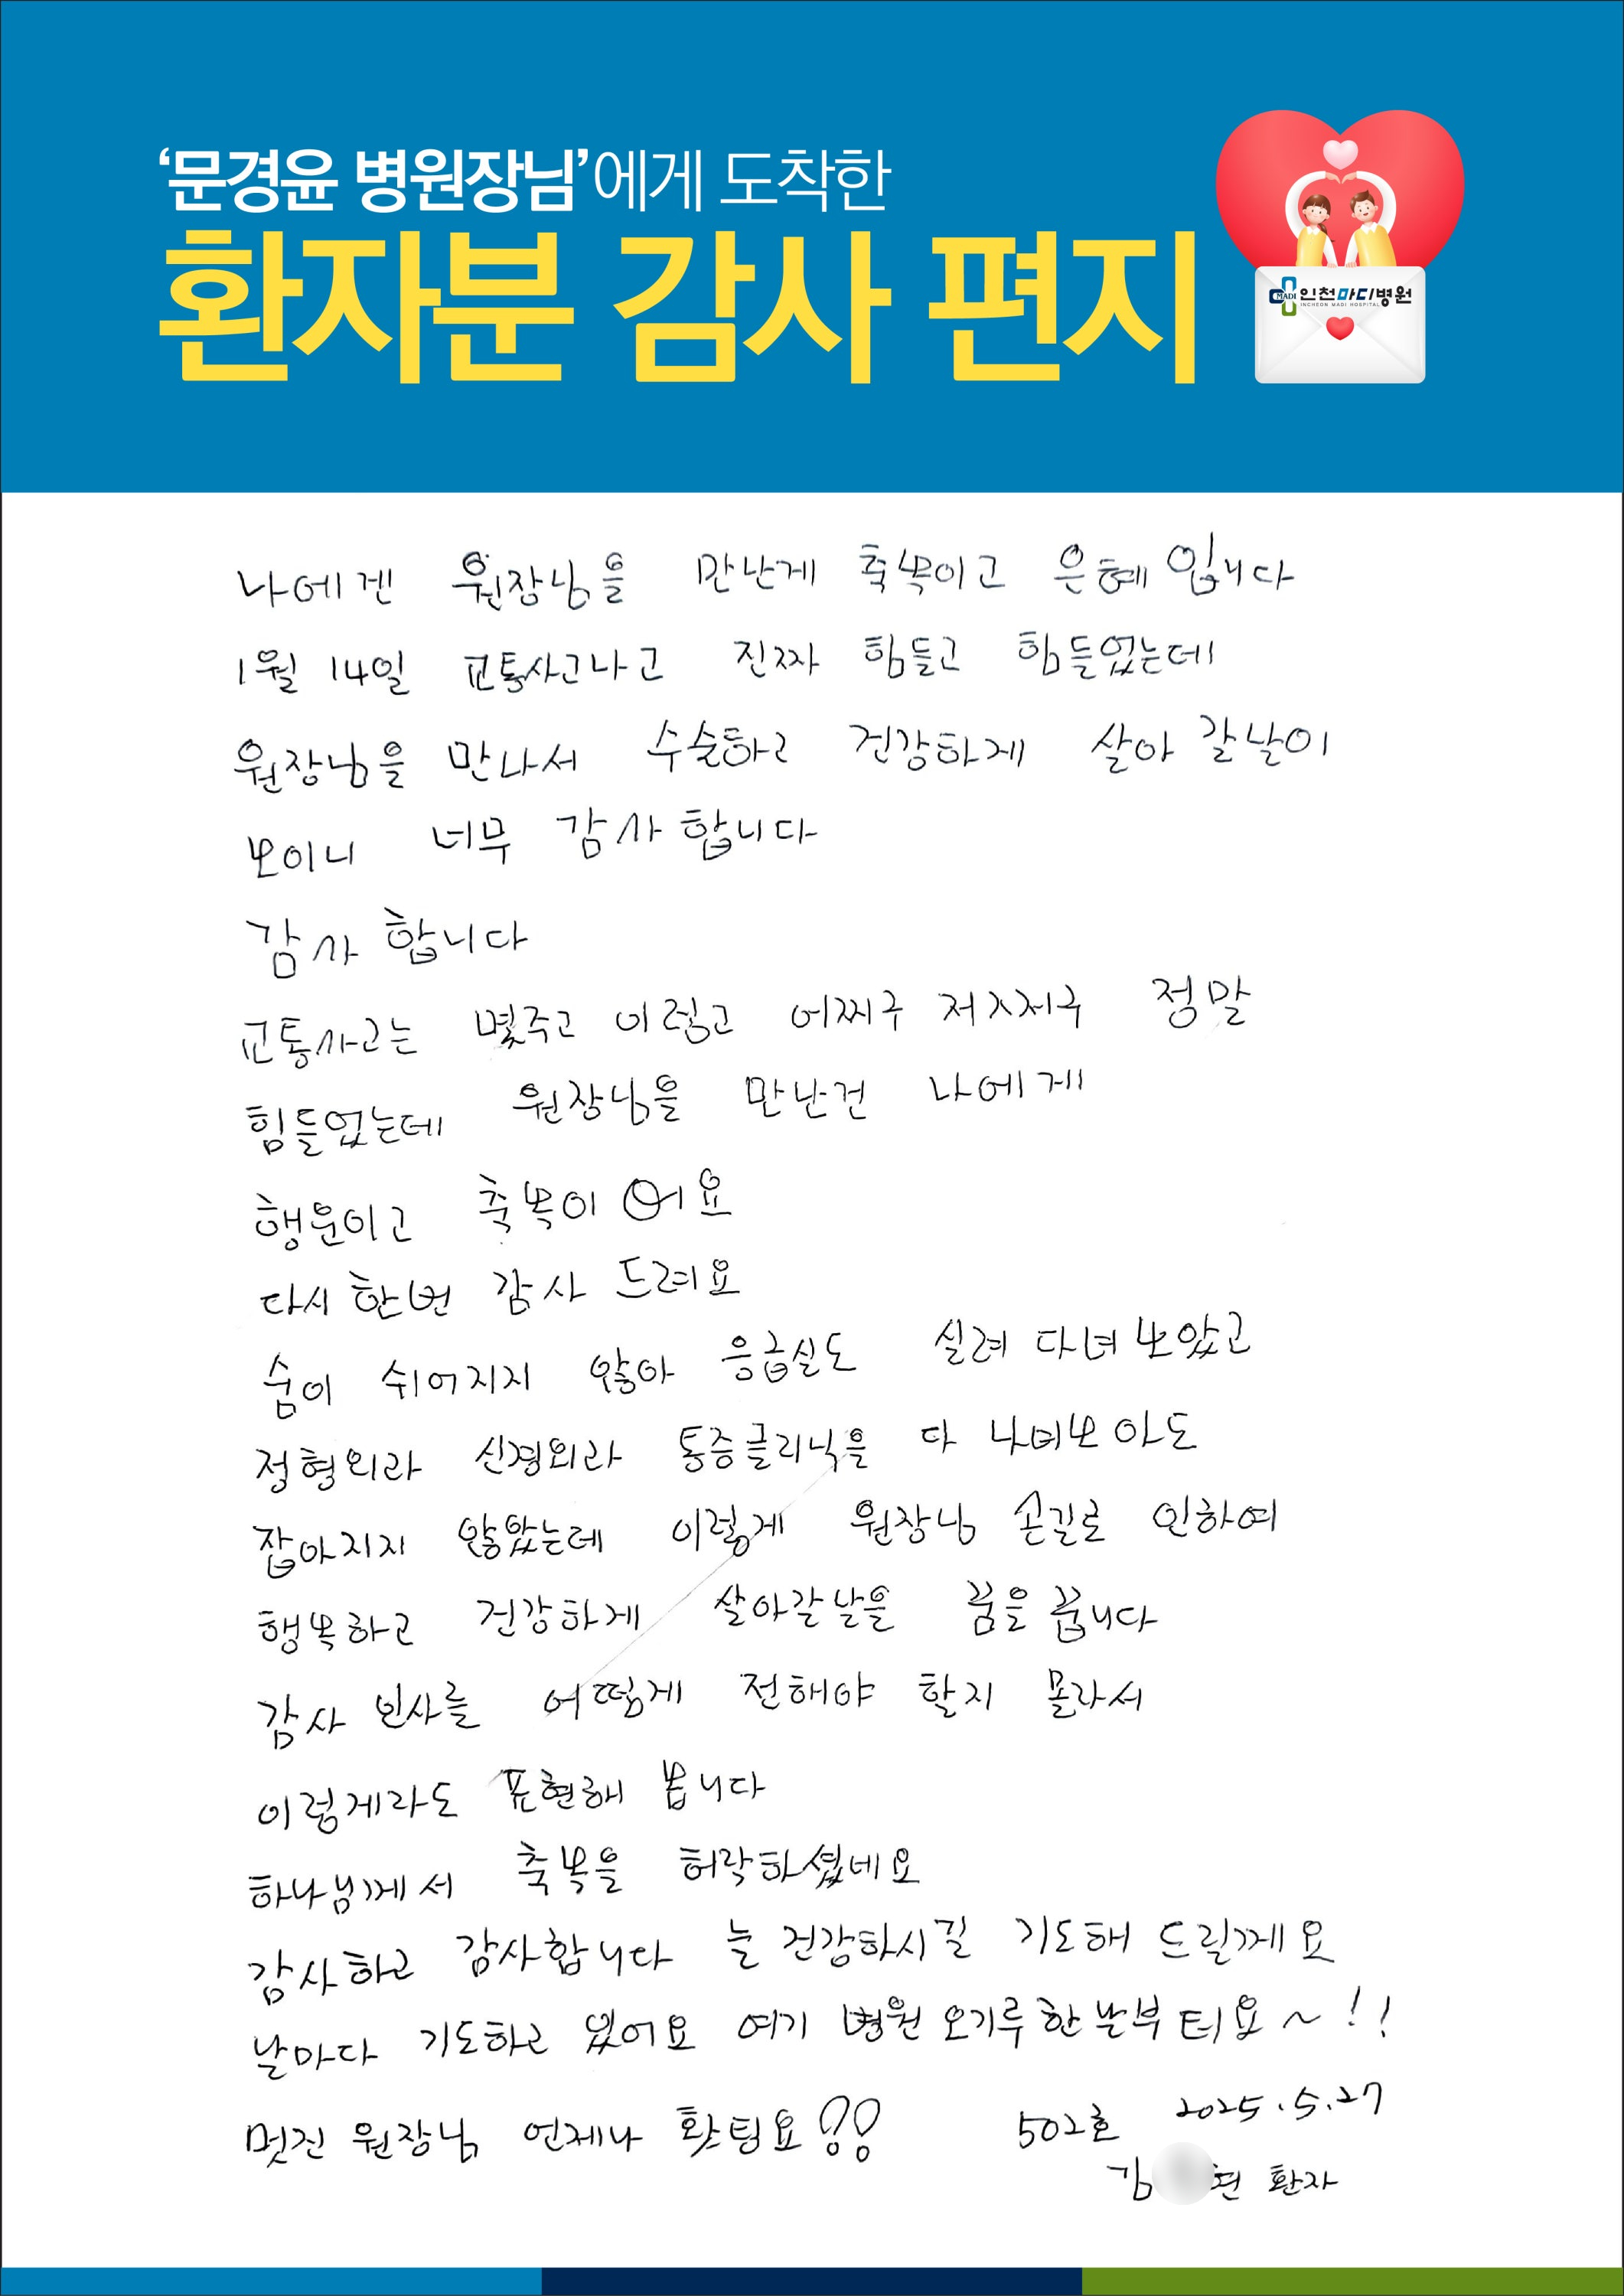 ‘문경윤 병원장님’에게 도착한
환자분 감사 편지
MADI 인천마디병원
INCHEON MADI HOSPITAL
나에겐 원장님을 만난게 축복이고 은혜 입니다
1월 14일 교통사고나고 진짜 힘들고 힘들었는데
원장님을 만나서 수술하고 건강하게 살아 갈날이
보이니 너무 감사 합니다
감사 합니다
교통사고는 이렇고 어찌구 저쩌구 정말
힘들었는데 원장님을 만난건 나에게
행운이고 축복이 어요
다시 한번 감사 드려요
숨이 쉬어지지 않아 응급실도 실려 다녀 보았고
정형외과 신경외과 통증클리닉을 다 다녀보아도
잡아지지 않았는데 이렇게 원장님 손길로 인하여
행복하고 건강하게 살아갈날을 꿈을 꿉니다
감사 인사를 어떻게 전해야 할지 몰라서
이렇게라도 표현해 봅니다
하나님께서 축복을 허락하셨네요
감사하고 감사합니다 늘 건강하시길 기도해 드릴께요
날마다 기도하고 있어요 여기 병원 오기루한날부터요~!!
멋진 원장님 언제나 홧팅요!! 502호 2025.5.27
김 현 환자